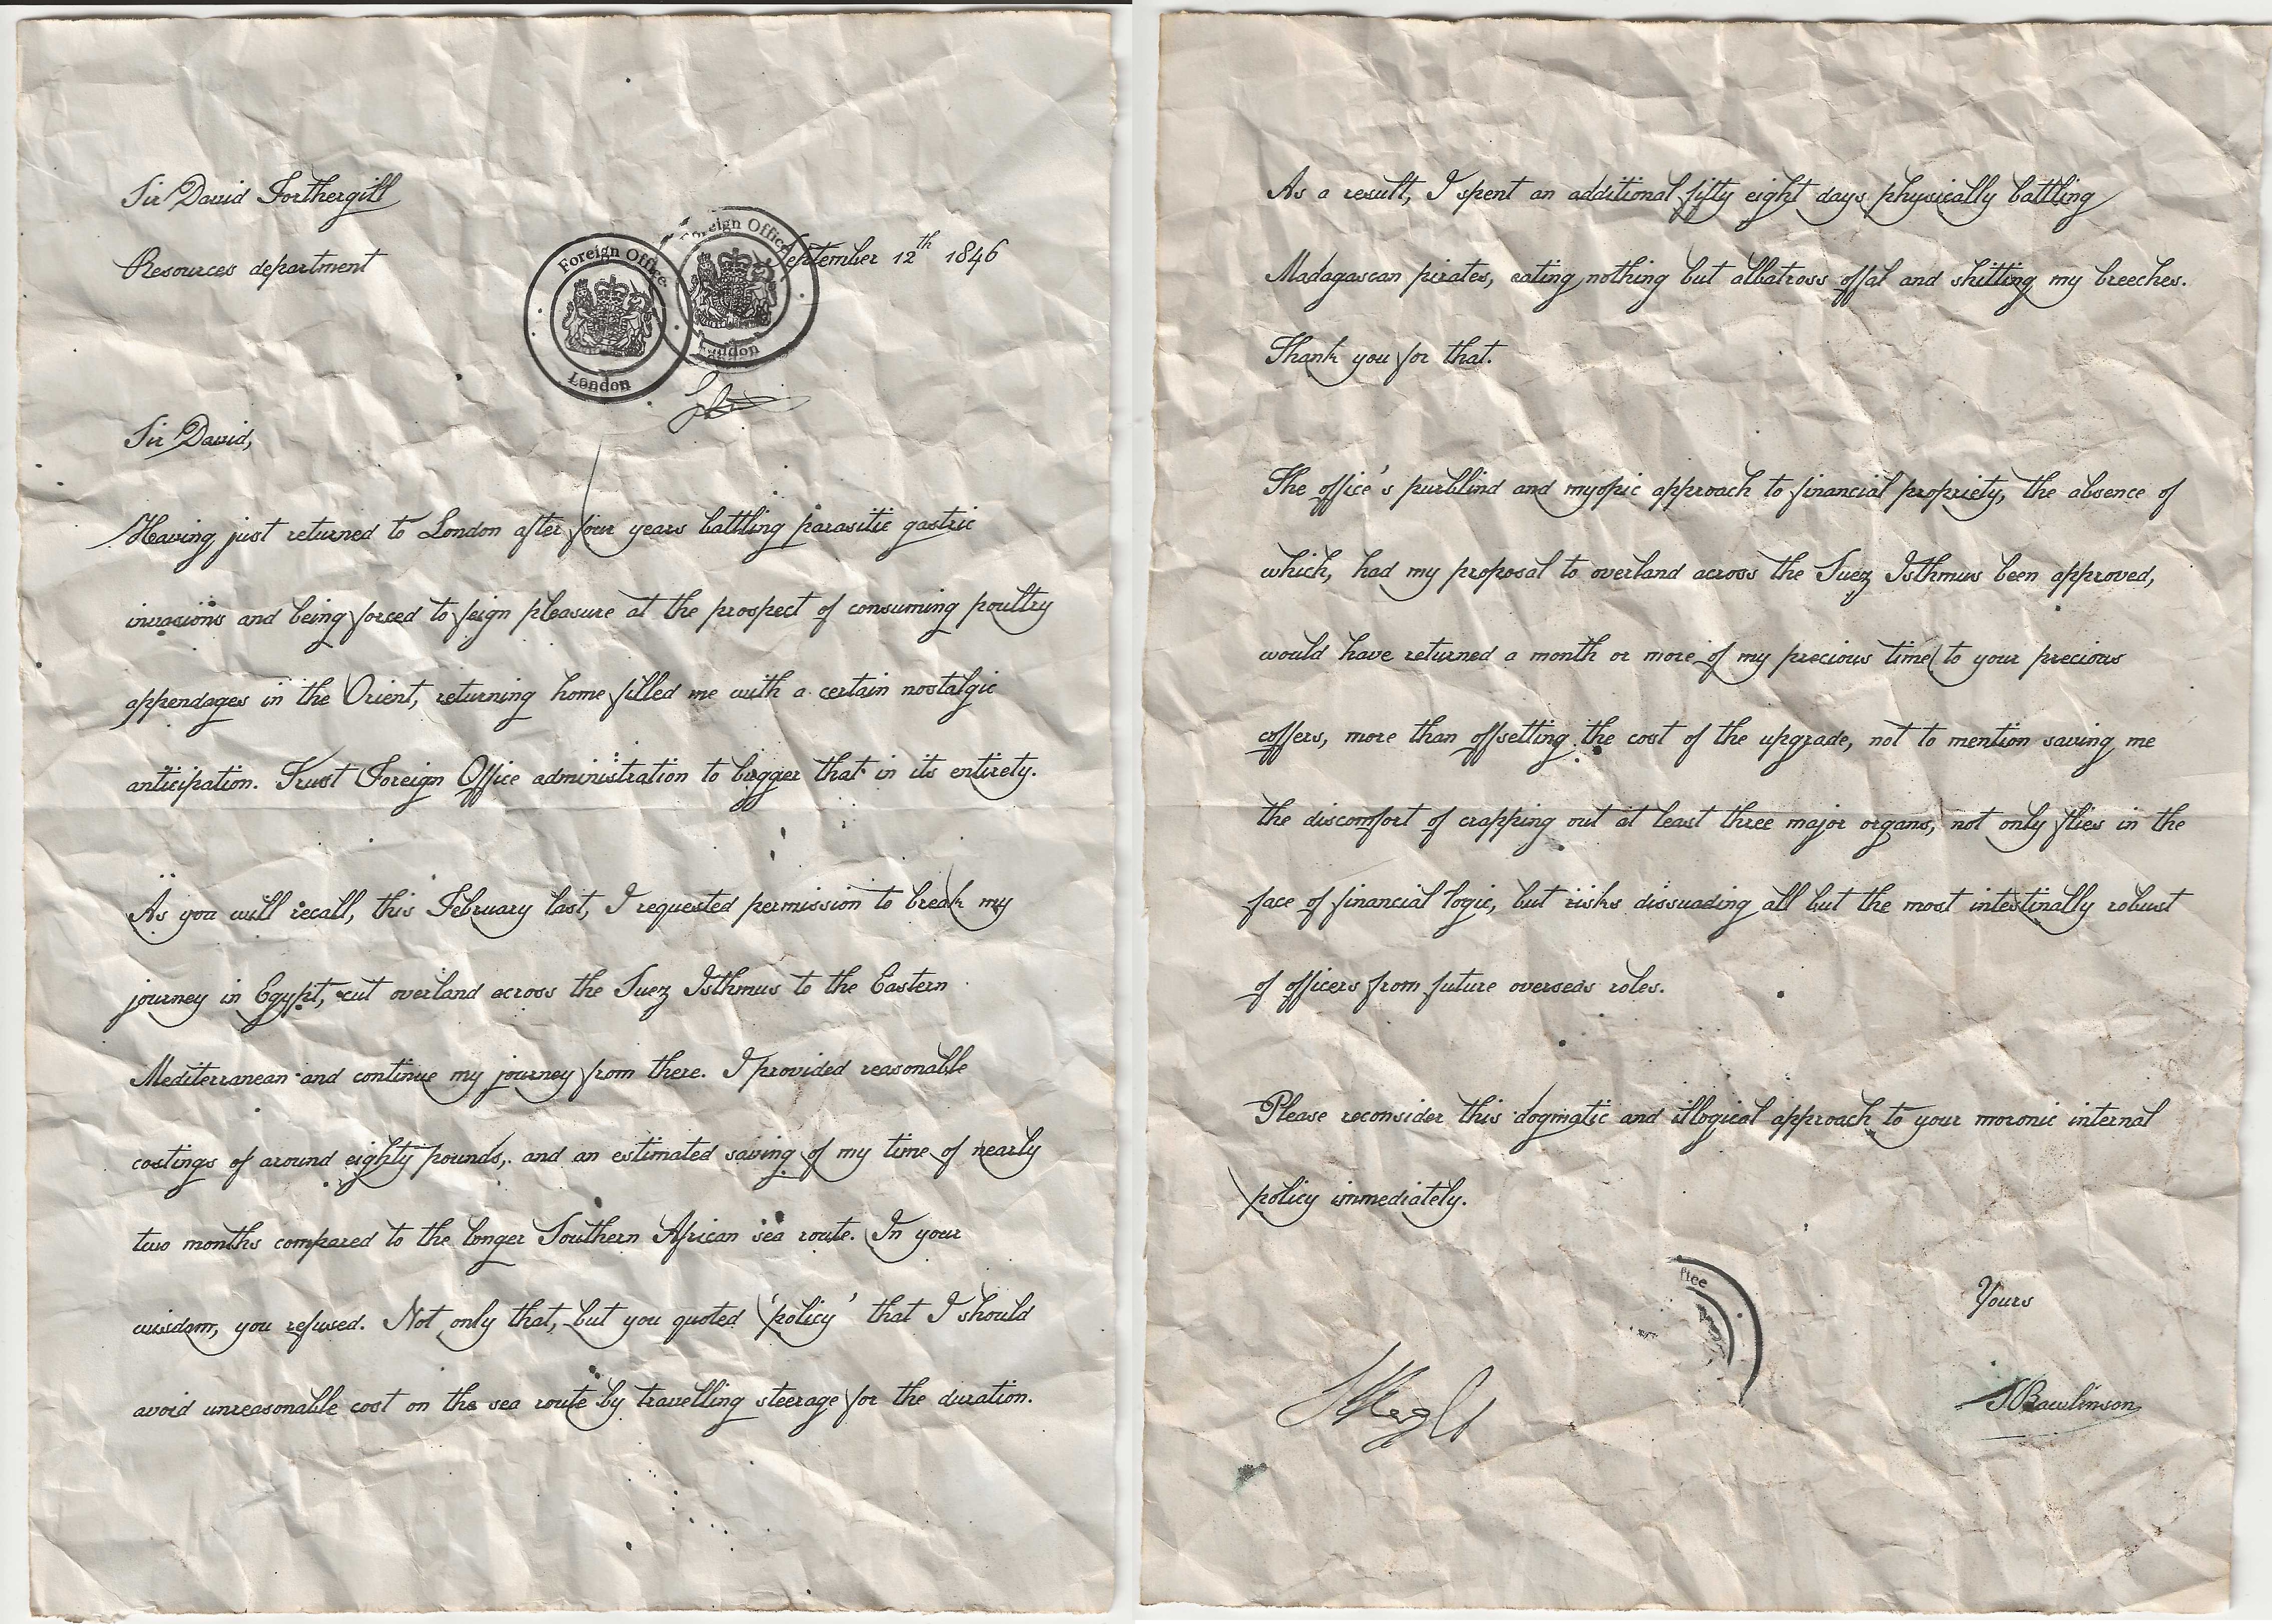 Sir David Forthergill
Resources department
September 12th 1846
Foreign Office
London
Foreign Office
London
Sir David,
Having just returned to London after four years battling parasitic gastric
invasions and being forced to feign pleasure at the prospect of consuming poultry
appendages in the Orient, returning home filled me with a certain nostalgic
anticipation. Trust Foreign Office administration to bugger that in its entirety.
As you will recall, this February last, I requested permission to break my
journey in Egypt, cut overland across the Suez Isthmus to the Eastern
Mediterranean and continue my journey from there. I provided reasonable
costings of around eighty pounds, and an estimated saving of my time of nearly
two months compared to the longer Southern African sea route. In your
wisdom, you refused. Not only that, but you quoted 'policy' that I should
avoid unreasonable cost on the sea route by travelling steerage for the duration.
As a result, I spent an additional fifty eight days physically battling
Madagascan pirates, eating nothing but albatross offal and shitting my breeches.
Thank you for that.
The office's purblind and myopic approach to financial propriety, the absence of
which, had my proposal to overland across the Suez Isthmus been approved,
would have returned a month or more of my precious time to your precious
coffers, more than offsetting the cost of the upgrade, not to mention saving me
the discomfort of crapping out at least three major organs, not only flies in the
face of financial logic, but risks dissuading all but the most intestinally robust
of officers from future overseas roles.
Please reconsider this dogmatic and illogical approach to your moronic internal
policy immediately.
ffice
Yours
SRawlinson